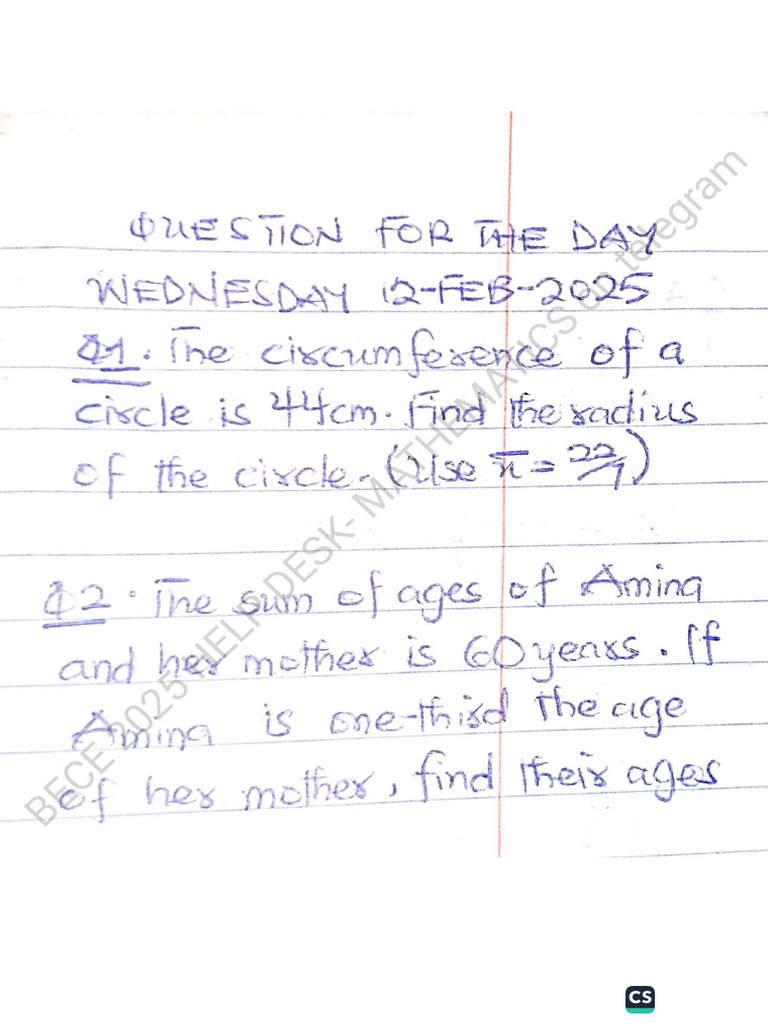 QUESTION FOR THE DAY
WEDNESDAY 12-FEB-2025
Q1. The circumference of a
circle is 44cm. Find the radius
of the circle. (Use π = 22/7)
Q2. The sum of ages of Amina
and her mother is 60 years. If
Amina is one-third the age
of her mother, find their ages
BECE 2025 HELPDESK- MATHEMATICS on telegram
CS